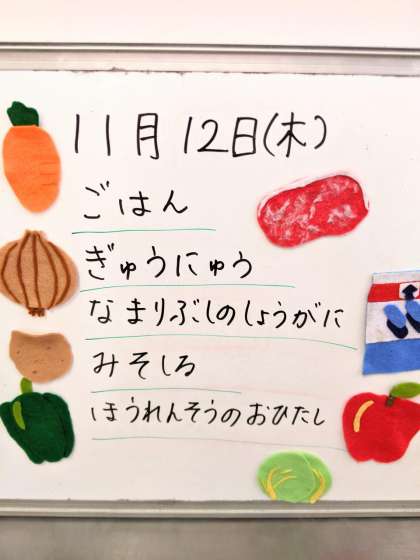 11月12日(木)
ごはん
ぎゅうにゅう
なまりぶしのしょうがに
みそしる
ほうれんそうのおひたし